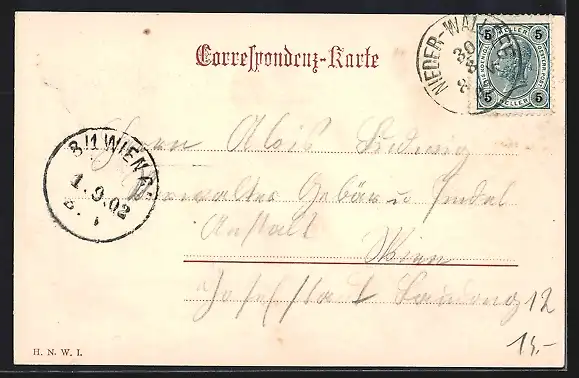 Correspondenz-Karte
NIEDER-WALLSEE
30
8
5 HELLER 5
5 HELLER 5
8/1 WIEN
1.9.02
Herrn Alois Ludwig
Verwalter Gebär u Findel
Anstalt
Wien
Josefstadt 12
15.-
H. N. W. I.